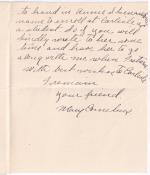 to send in Annie
name to enroll at Carlisle
a student So if you will
kindly write to her some
time and have her to go
along with me when I return
With best wishes to Carlisle
I remain
your friend
Mary